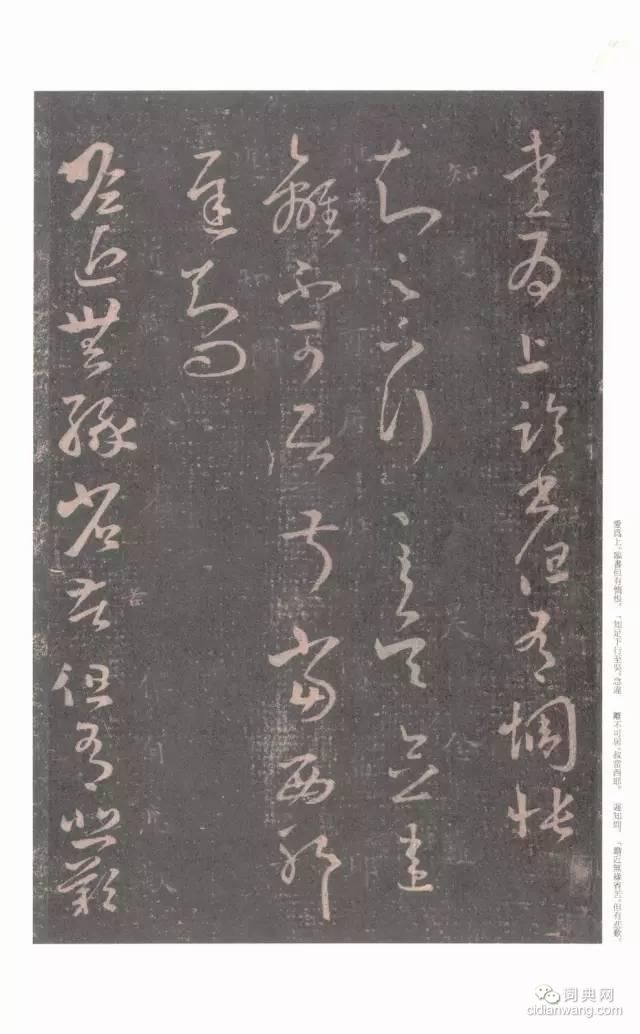 愛為上臨書但有惆悵
知足下行至吳念違
離不可居叔當西耶
遲知問
瞻近無緣省苦但有悲歎
愛爲上，臨書但有惆悵。「知足下行至吳，念違
離不可居，叔當西耶。
遲知問。
「瞻近無緣省苦，但有悲歎。
词典网
cidianwang.com